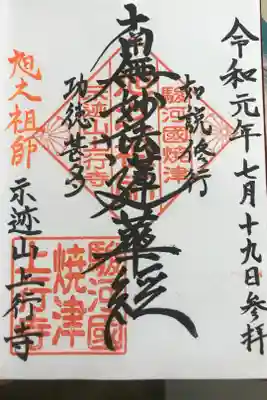 令和元年七月十九日参拝
如説修行
駿河國焼津
南無妙法蓮華経
示迹山上行寺
功徳甚多
駿河國
焼津
上行寺
旭大祖師
示迹山上行寺